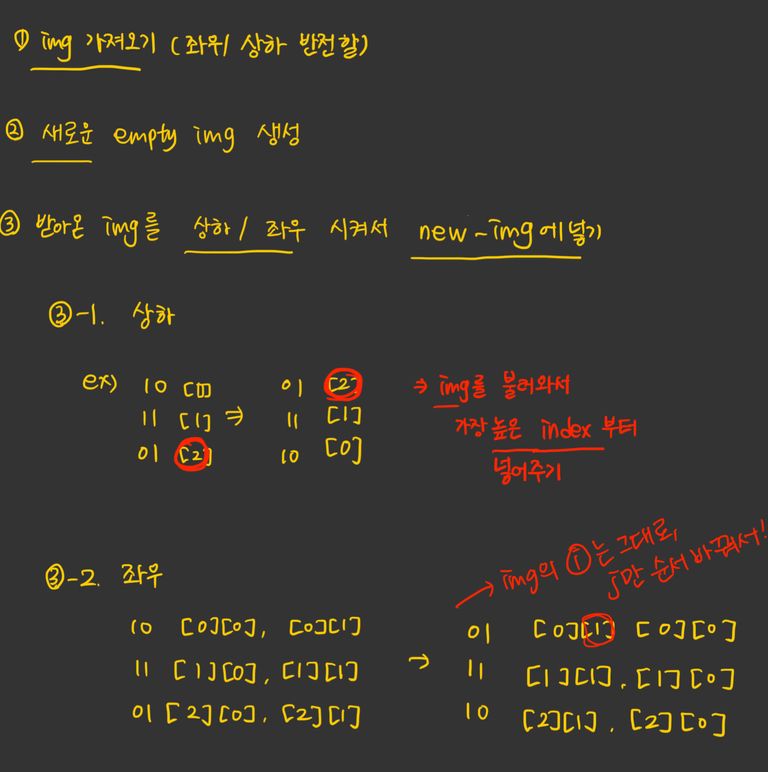 ① img 가져오기 (좌우/ 상하 반전할)
② 새로운 empty img 생성
③ 받아온 img를 상하 / 좌우 시켜서 new-img에 넣기
③-1. 상하
ex) 10 [0] 01 [2] ⇒ img를 불러와서
11 [1] ⇒ 11 [1] 가장 높은 index 부터
01 [2] 10 [0] 넣어주기
③-2. 좌우
→ img의 ⓘ는 그대로,
j만 순서 바꿔서!
10 [0][0], [0][1] 01 [0][1] [0][0]
11 [1][0], [1][1] → 11 [1][1], [1][0]
01 [2][0], [2][1] 10 [2][1], [2][0]